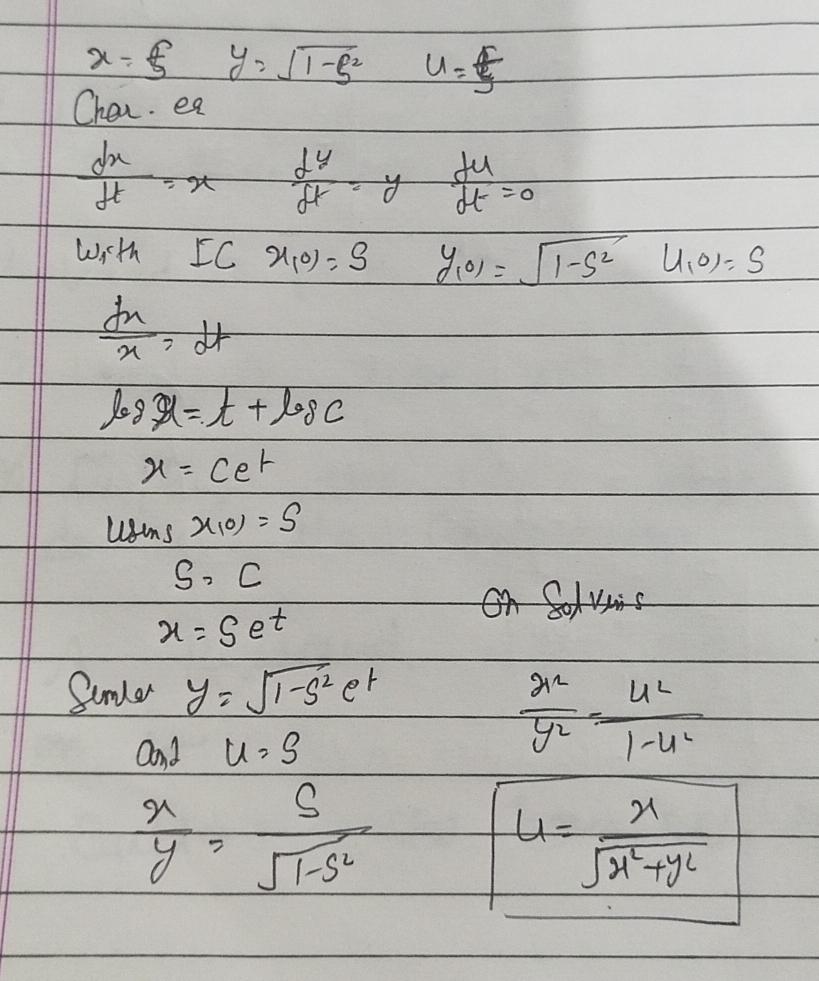 x = ξ y = √1-ξ² u = ξ
Char. eq
dx/dt = x dy/dt = y du/dt = 0
With IC x(0) = S y(0) = √1-S² u(0) = S
dx/x = dt
log x = t + log C
x = Ce^t
Using x(0) = S
S = C
x = Se^t
On Solving
y = √1-S² e^t
x²/y² = u²/1-u²
and u = S
x/y = S/√1-S²
u = x/√x²+y²